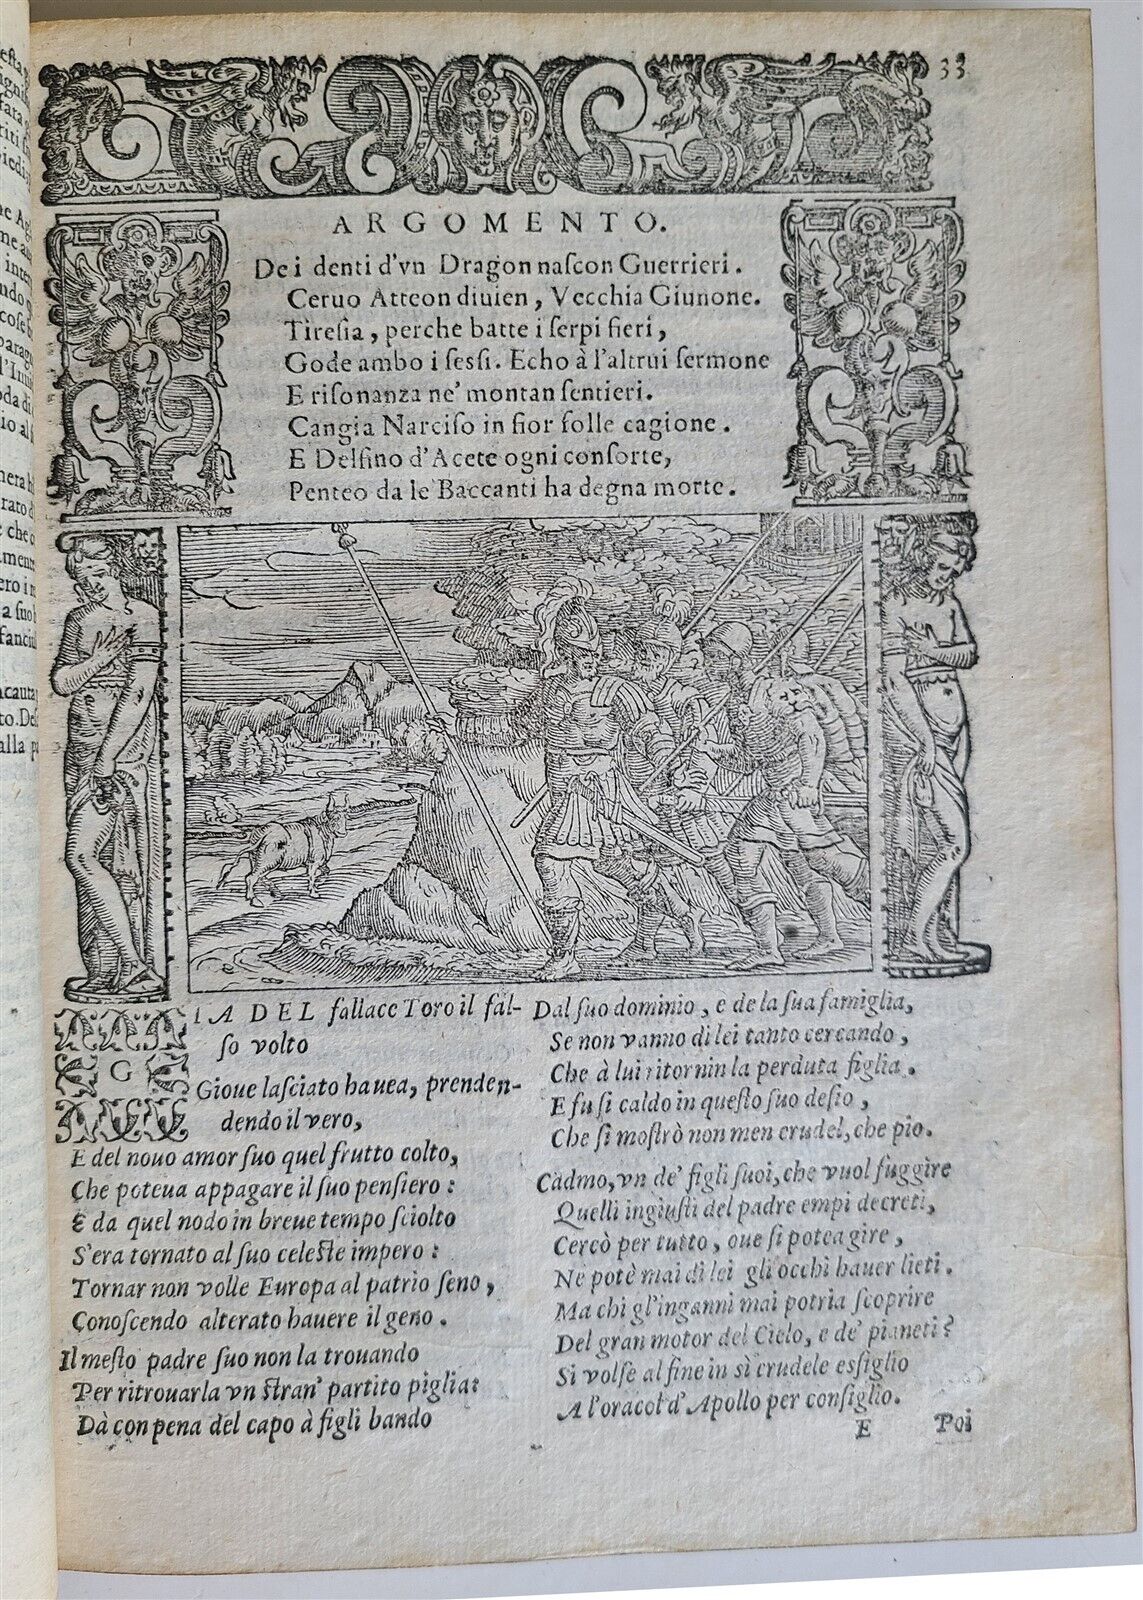 33
ARGOMENTO.
De i denti d'vn Dragon naſcon Guerrieri.
Ceruo Atteon diuien, Vecchia Giunone.
Tireſia, perche batte i ſerpi fieri,
Gode ambo i ſeſſi. Echo à l'altrui ſermone
E riſonanza ne' montan ſentieri.
Cangia Narciſo in fior folle cagione.
E Delfino d'Acete ogni conſorte,
Penteo da le Baccanti ha degna morte.
GIA DEL fallace Toro il fal-
ſo volto
Gioue laſciato hauea, prenden-
dendo il vero,
E del nouo amor ſuo quel frutto colto,
Che poteua appagare il ſuo penſiero:
E da quel nodo in breue tempo ſciolto
S'era tornato al ſuo celeſte impero:
Tornar non volle Europa al patrio ſeno,
Conoſcendo alterato hauere il geno.
Il meſto padre ſuo non la trouando
Per ritrouarla vn ſtran' partito piglia:
Dà con pena del capo à figli bando
Dal ſuo dominio, e de la ſua famiglia,
Se non vanno di lei tanto cercando,
Che à lui ritornin la perduta figlia.
E fu ſi caldo in queſto ſuo deſio,
Che ſi moſtrò non men crudel, che pio.
Cadmo, vn de' figli ſuoi, che vuol fuggire
Quelli ingiuſti del padre empi decreti,
Cercò per tutto, oue ſi potea gire,
Ne potè mai di lei gli occhi hauer lieti.
Ma chi gl'inganni mai potria ſcoprire
Del gran motor del Cielo, e de' pianeti?
Si volſe al fine in sì crudele eſſiglio
A l'oracol d'Apollo per conſiglio.
E Poi